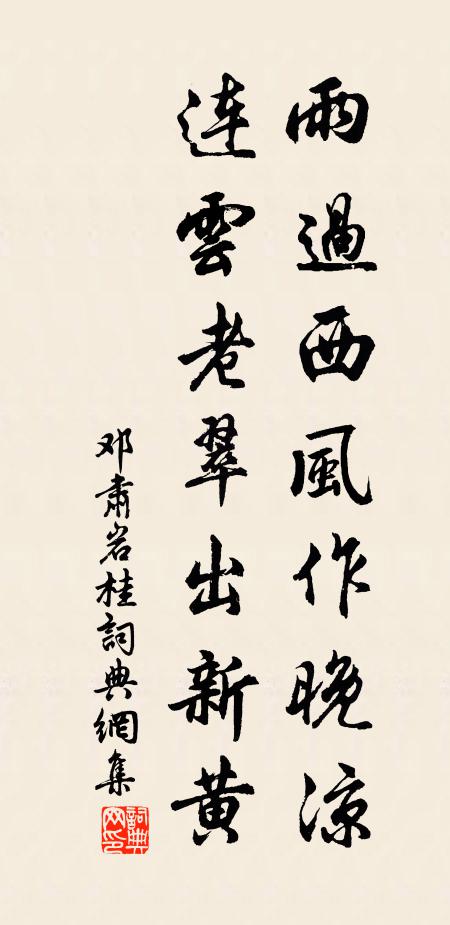 雨過西風作晚涼
連雲老翠出新黃
邓肅岩桂詞典網集
詞典网印